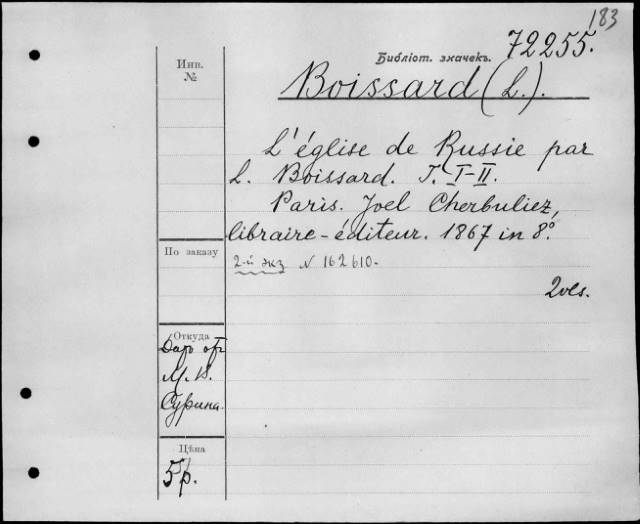 183
Инв.
№
Библіот. значекъ. 72255.
Boissard (L.).
L'église de Russie par
L. Boissard. T. I-II.
Paris. Joel Cherbuliez,
libraire-éditeur. 1867 in 8°.
По заказу
2-й экз N 162610.
2 vls.
Откуда
Даръ отъ
М. В.
Сурина.
Цѣна
5 р.